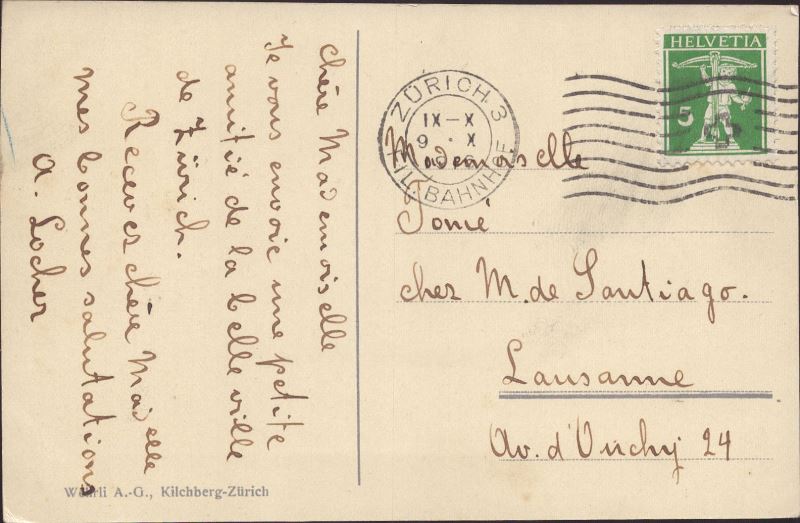 chère Mademoiselle
Je vous envoie une petite
amitié de la belle ville
de Zürich.
Recevez chère Madelle
mes bonnes salutations
A. Locher
Wehrli A.-G., Kilchberg-Zürich
HELVETIA
5
ZÜRICH 3
IX-X
9 . X
FIL. BAHNHOF
Mademoiselle
Tomé
chez M. de Santiago.
Lausanne
Av. d'Ouchy 24